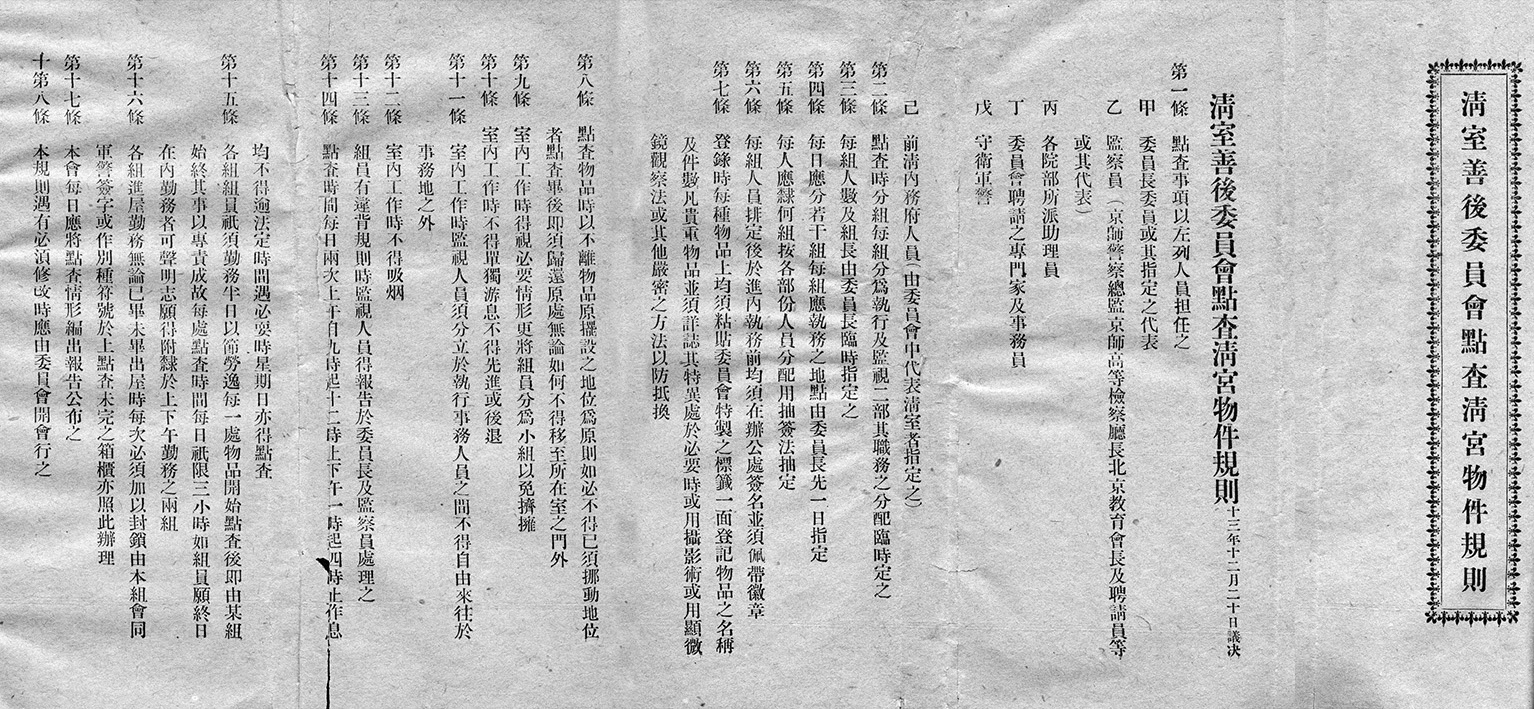 清室善後委員會點查清宮物件規則
清室善後委員會點查清宮物件規則 十三年十二月二十日議决
第一條 點查事項以左列人員担任之
甲 委員長委員或其指定之代表
乙 監察員（京師警察總監京師高等檢察廳長北京教育會長及聘請員等
或其代表）
丙 各院部所派助理員
丁 委員會聘請之專門家及事務員
戊 守衛軍警
己 前清內務府人員（由委員會中代表淸室者指定之）
第二條 點查時分組每組分爲執行及監視二部其職務之分配臨時定之
第三條 每組人數及組長由委員長臨時指定之
第四條 每日應分若干組每組應執務之地點由委員長先一日指定
第五條 每人應隸何組按各部份人員分配用抽簽法抽定
第六條 每組人員排定後於進內執務前均須在辦公處簽名並須佩帶徽章
第七條 登錄時每種物品上均須粘貼委員會特製之標籤一面登記物品之名稱
及件數凡貴重物品並須詳誌其特異處於必要時或用攝影術或用顯微
鏡觀察法或其他嚴密之方法以防抵換
第八條 點查物品時以不離物品原擺設之地位爲原則如必不得已須挪動地位
者點查畢後即須歸還原處無論如何不得移至所在室之門外
第九條 室內工作時得視必要情形更將組員分爲小組以免擠擁
第十條 室內工作時不得單獨游息不得先進或後退
第十一條 室內工作時監視人員須分立於執行事務人員之間不得自由來往於
事務地之外
第十二條 室內工作時不得吸烟
第十三條 組員有違背規則時監視人員得報告於委員長及監察員處理之
第十四條 點查時間每日兩次上午自九時起十二時止下午一時起四時止作息
均不得逾法定時間遇必要時星期日亦得點查
第十五條 各組組員祇須勤務半日以節勞逸每一處物品開始點查後即由某組
始終其事以專責成故每處點查時間每日祇限三小時如組員願終日
在內勤務者可聲明志願得附隸於上下午勤務之兩組
第十六條 各組進屋勤務無論已畢未畢出屋時每次必須加以封鎖由本組會同
軍警簽字或作別種符號於上點查未完之箱櫃亦照此辦理
第十七條 本會每日應將點查情形編出報告公布之
十第八條 本規則遇有必須修改時應由委員會開會行之